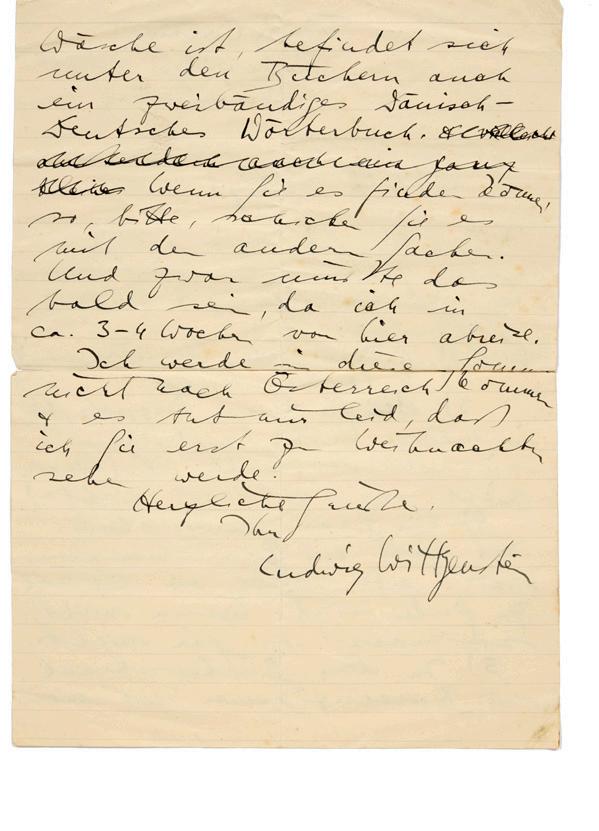 Wäsche ist, befindet sich
unter den Büchern auch
ein zweibändiges Dänisch-
Deutsches Wörterbuch. & vielleicht
auch ein ganz
kleines Wenn Sie es finden können,
so, bitte, schicken Sie es
mit den andern Sachen.
Und zwar müßte das
bald sein, da ich in
ca. 3-4 Wochen von hier abreise.
Ich werde in diesem Sommer
nicht nach Österreich kommen
& es tut mir leid, daß
ich Sie erst zu Weihnachten
sehen werde.
Herzliche Grüße.
Ihr
Ludwig Wittgenstein